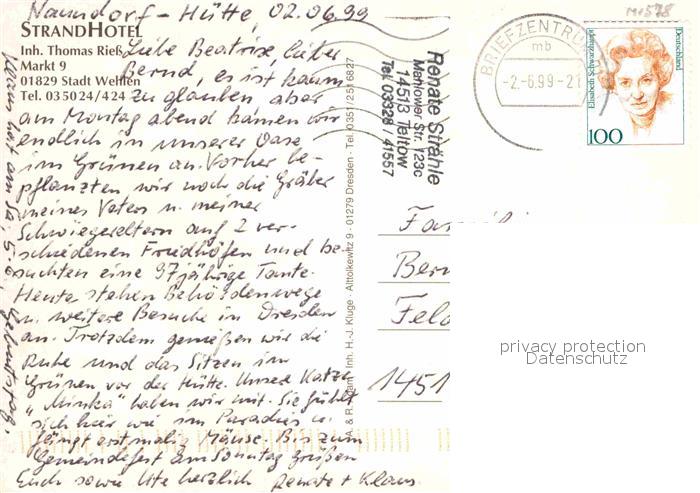 Naundorf-Hütte, 02.06.99
STRANDHOTEL
Inh. Thomas Rieß
Markt 9
01829 Stadt Wehlen
Tel. 035024/424
Liebe Beatrise, lieber
Bernd, es ist kaum
zu glauben aber
am Montag abend kamen wir
endlich in unserer Oase
im Grünen an. Vorher be-
pflanzten wir noch die Gräber
meines Vaters u. meiner
Schwiegereltern auf 2 ver-
schiedenen Friedhöfen und be-
suchten eine 97jährige Tante.
Heute stehen Behördenwege
u. weitere Besuche in Dresden
an. Trotzdem genießen wir die
Ruhe und das Sitzen im
Grünen vor der Hütte. Unsere Katze
"Minka" haben wir mit. Sie fühlt
sich hier wie im Paradies u.
fängt erstmalig Mäuse. Bis zum
Gemeindefest am Sonntag grüßen
Euch sowie Ute herzlich Renate + Klaus.
hat am Sa, 5.6. Geburtstag.
& R. Adam · Inh. H.-J. Kluge · Altlolkewitz 9 · 01279 Dresden · Tel. 0351/2516827
Renate Strähle
Mahlower Str. 123c
14513 Teltow
Tel. 03328 / 41557
BRIEFZENTRUM
mb
-2.-6.99-21
Deutschland
Elisabeth Schwarzhaupt
100
Fa
Ber
Feld
1451
privacy protection
Datenschutz